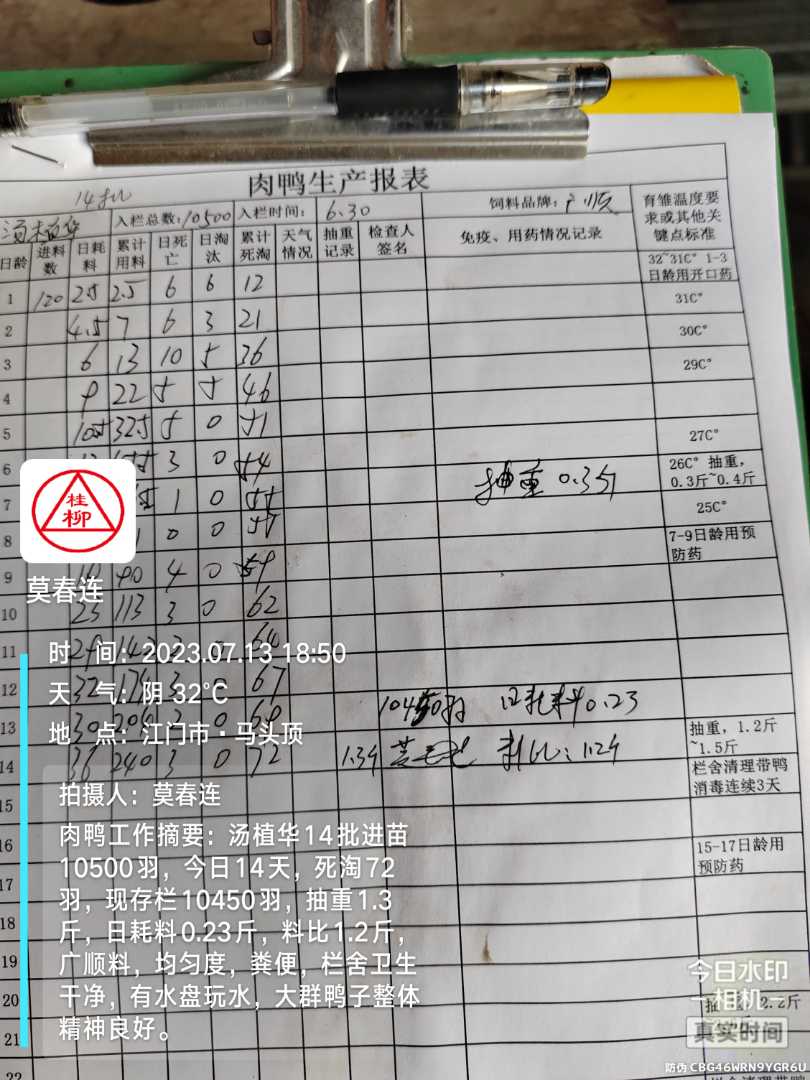 肉鸭生产报表
14批
汤植华 入栏总数:10500 入栏时间: 6.30 饲料品牌:广顺 育雏温度要求或其他关键点标准
日龄 进料数 日耗料 累计用料 日死亡 日淘汰 累计死淘 天气情况 抽重记录 检查人签名 免疫、用药情况记录
32~31C° 1-3日龄用开口药
1 120 2.5 2.5 6 6 12 31C°
2 4.5 7 6 3 21 30C°
3 6 13 10 5 36 29C°
4 9 22 5 5 46
5 10.5 32.5 5 0 51 27C°
6 3 0 54 抽重 0.3斤 26C° 抽重，0.3斤~0.4斤
7 1 0 55 25C°
8 0 0 57 7-9日龄用预防药
9 90 4 0 59
10 23 113 3 0 62
11 29 142 0 64
12 32 174 3 0 67 10450羽 日耗料0.23
13 30 204 3 0 69 抽重，1.2斤~1.5斤
14 36 240 3 0 72 1.3斤 料比:1.2斤 栏舍清理带鸭消毒连续3天
15
16 15-17日龄用预防药
17
18
19
20 2.2斤
21
22
桂柳
莫春连
时 间：2023.07.13 18:50
天 气：阴 32℃
地 点：江门市·马头顶
拍摄人：莫春连
肉鸭工作摘要：汤植华14批进苗
10500羽，今日14天，死淘72
羽，现存栏10450羽，抽重1.3
斤，日耗料0.23斤，料比1.2斤，
广顺料，均匀度，粪便，栏舍卫生
干净，有水盘玩水，大群鸭子整体
精神良好。
今日水印
相机
真实时间
防伪 CBG46WRN9YGR6U